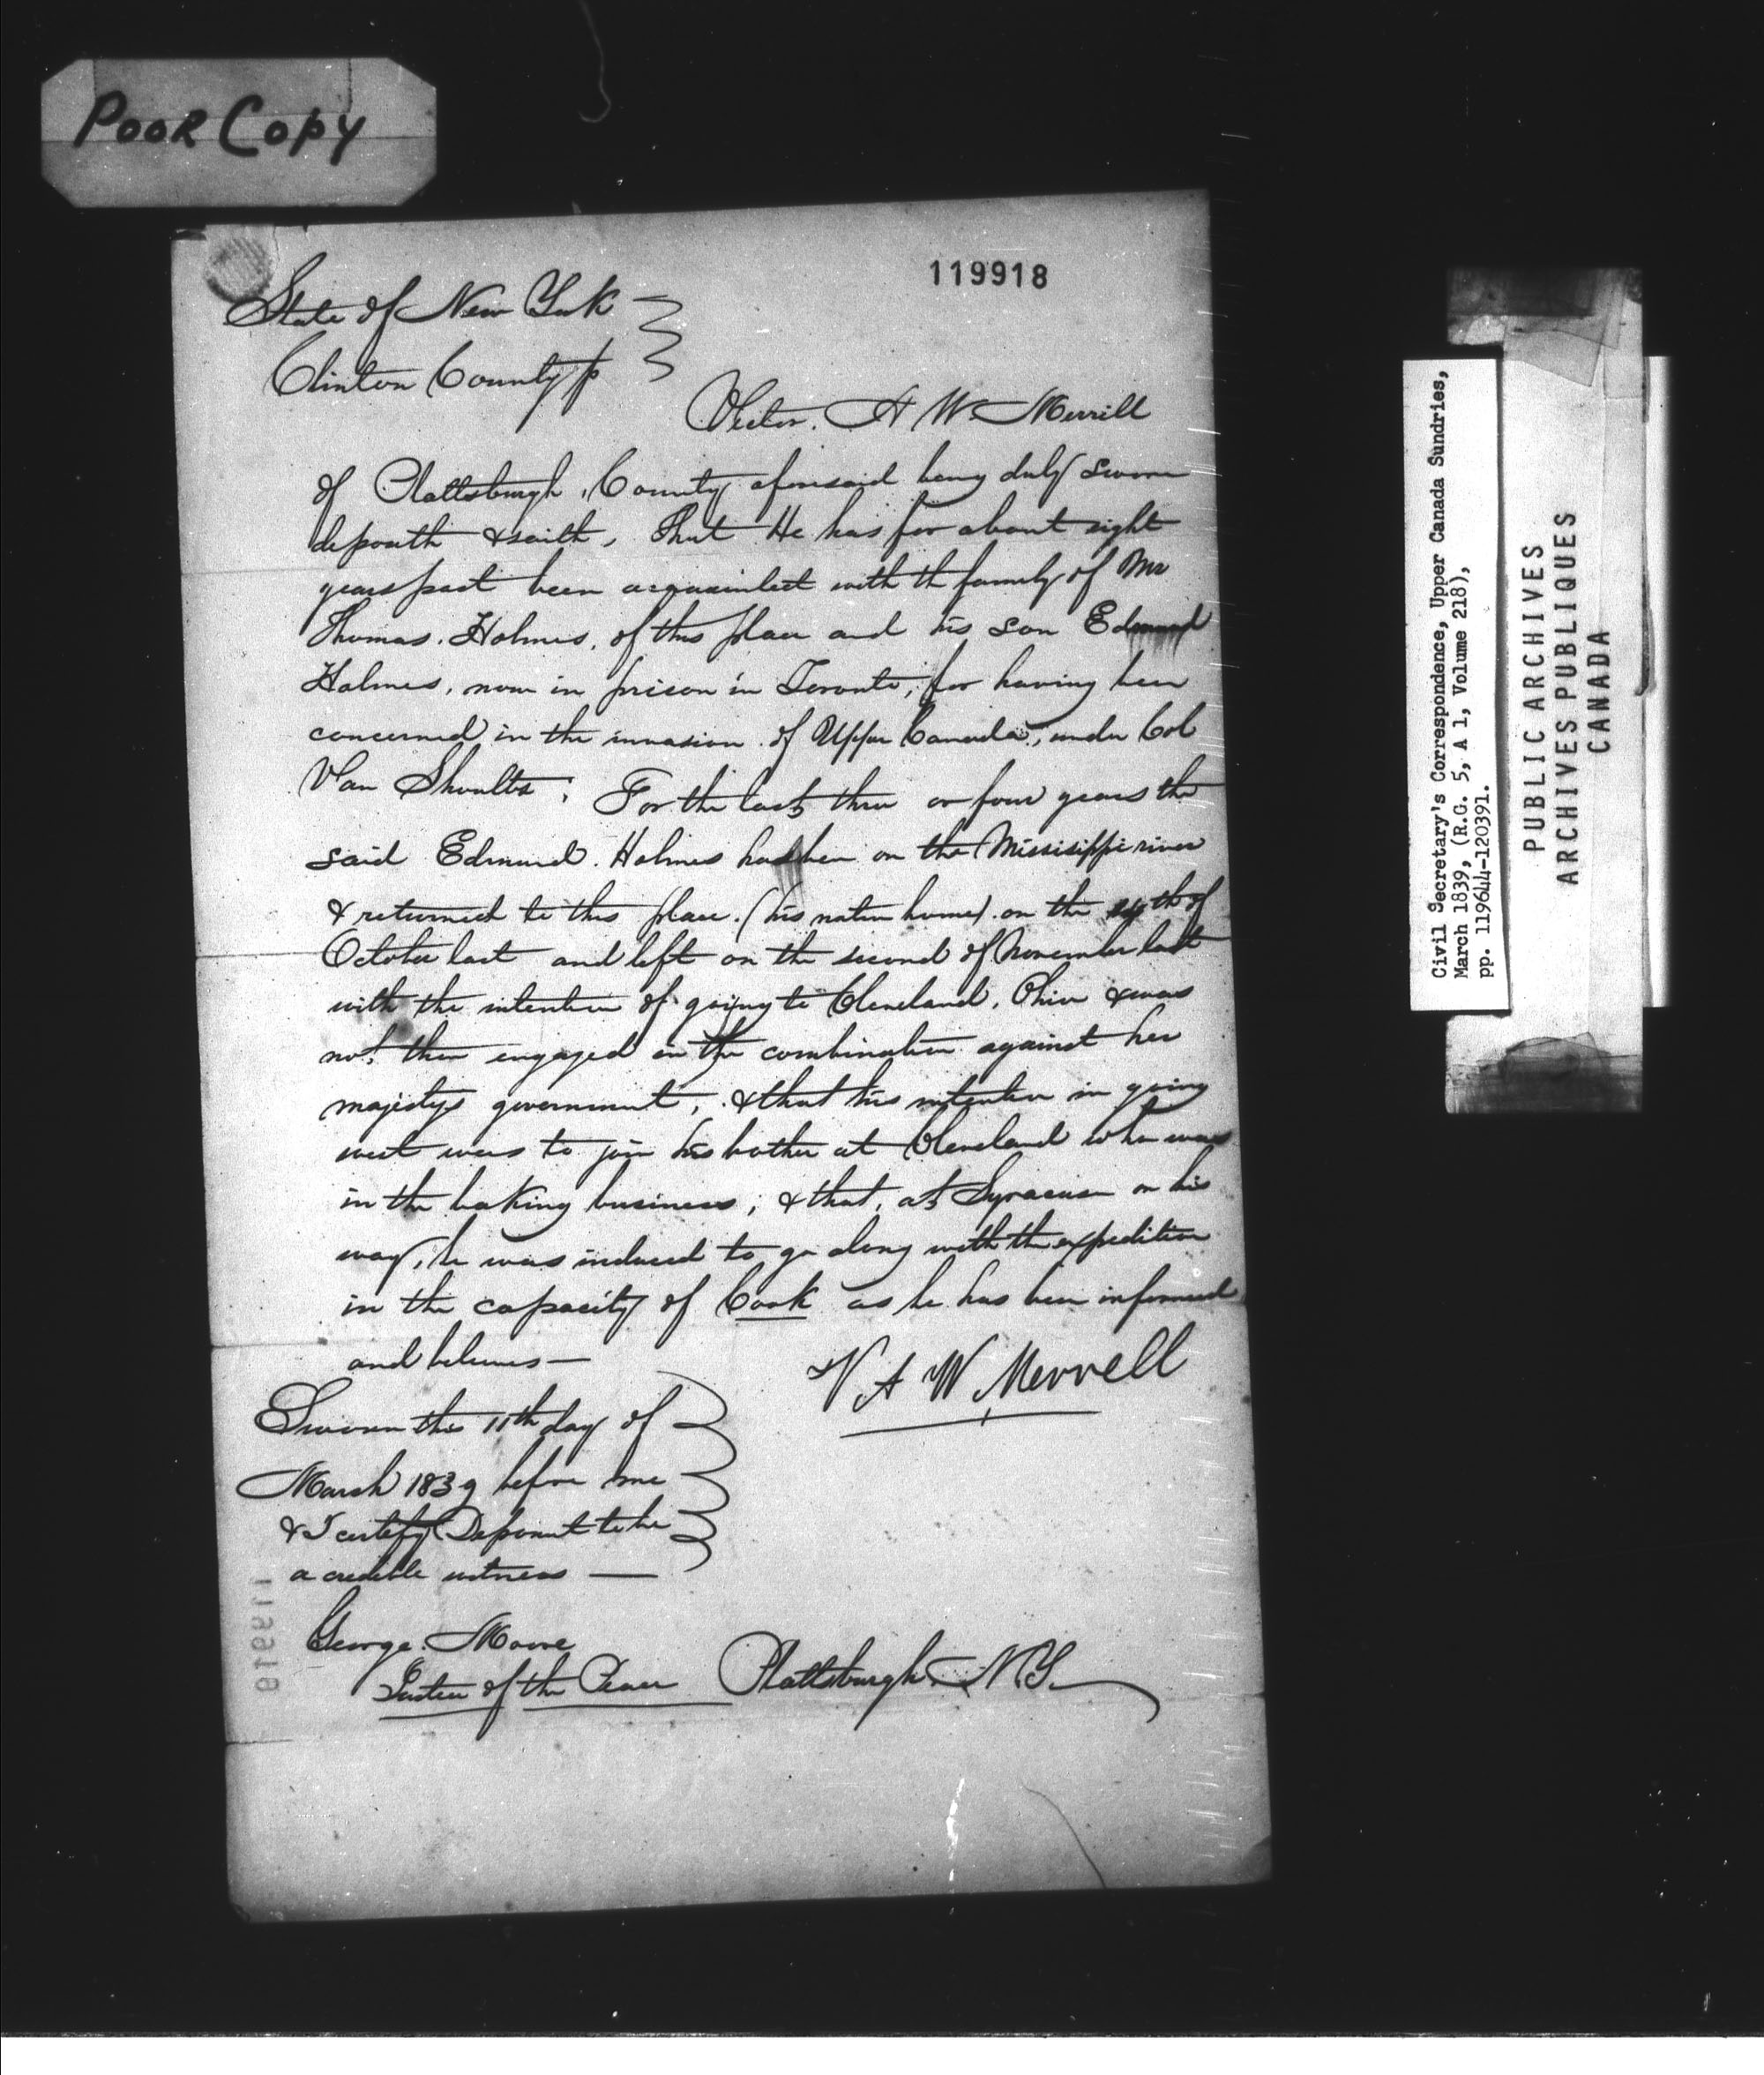 Poor Copy
119918
State of New York
Clinton County ss
Victor. A W Merrill
of Plattsburgh, County aforesaid being duly sworn
deposeth & saith, That He has for about eight
years past been acquainted with th family of Mr
Thomas. Holmes, of this place and his son Edmund
Holmes, now in prison in Toronto, for having been
concerned in the invasion of Upper Canada, under Col
Van Shoults; For the last three or four years the
said Edmund. Holmes had been on the Missisippi river
& returned to this place. (his native home) on the th of
October last and left on the second of November last
with the intention of going to Cleveland, Ohio & was
not then engaged in the combination against her
majestys government, & that his intention in going
west was to join his bother at Cleveland who was
in the baking business; & that, at Syracuse on his
way, he was induced to go along with the expedition
in the capacity of Cook as he has been informed
and believes —
V A W Merrell
Sworn this 11th day of
March 1839 before me
& I certify Deponent to be
a credible witness —
George. Moore
Justice of the Peace Plattsburgh N Y.
Civil Secretary's Correspondence, Upper Canada Sundries,
March 1839, (R.G. 5, A 1, Volume 218),
pp. 119644-120391.
PUBLIC ARCHIVES
ARCHIVES PUBLIQUES
CANADA